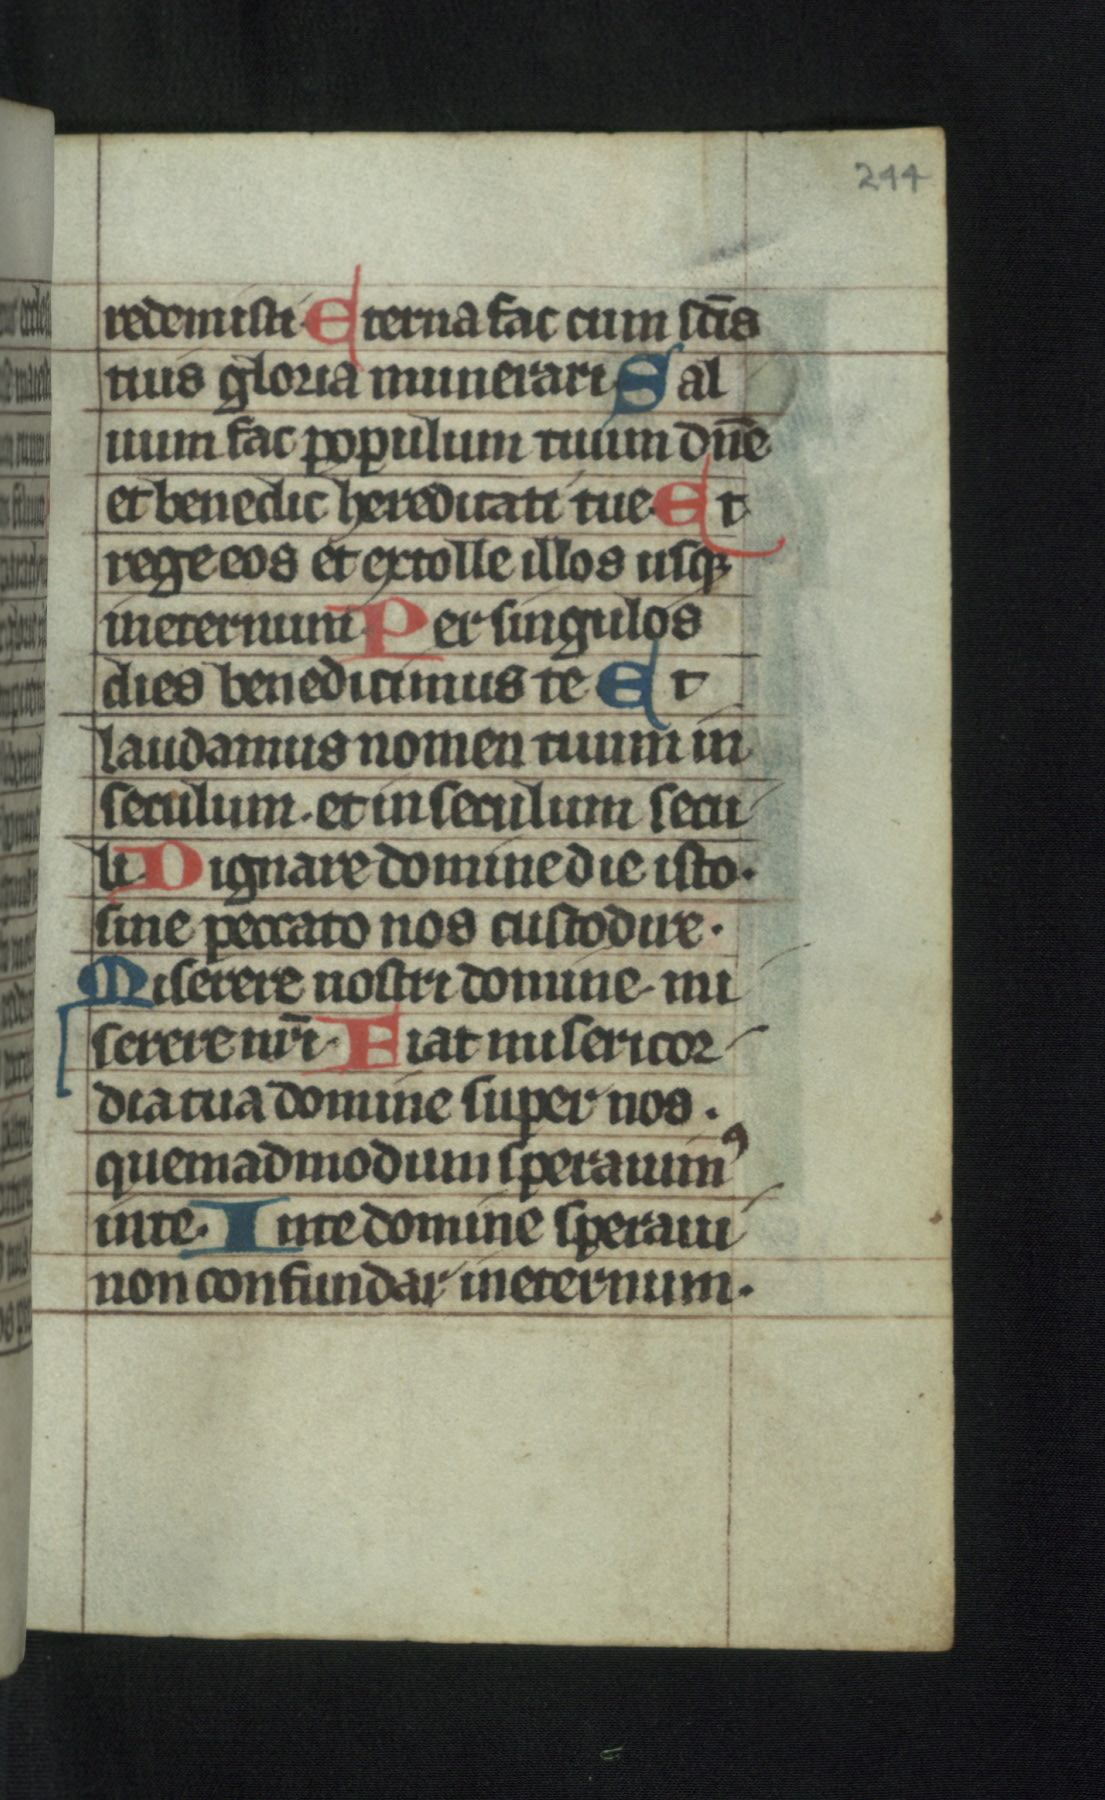 244
redemisti Eterna fac cum sc̄is
tuis gloria munerari Sal
uum fac populum tuum dn̄e
et benedic hereditati tue. Et
rege eos et extolle illos usqꝫ
ineternum Per singulos
dies benedicimus te Et
laudamus nomen tuum in
seculum. et in seculum secu
li Dignare domine die isto.
sine peccato nos custodire.
Miserere nostri domine. mi
serere nr̄i. Fiat misericor
dia tua domine super nos.
quemadmodum sperauimꝰ
inte. Inte domine speraui
non confundar ineternum.